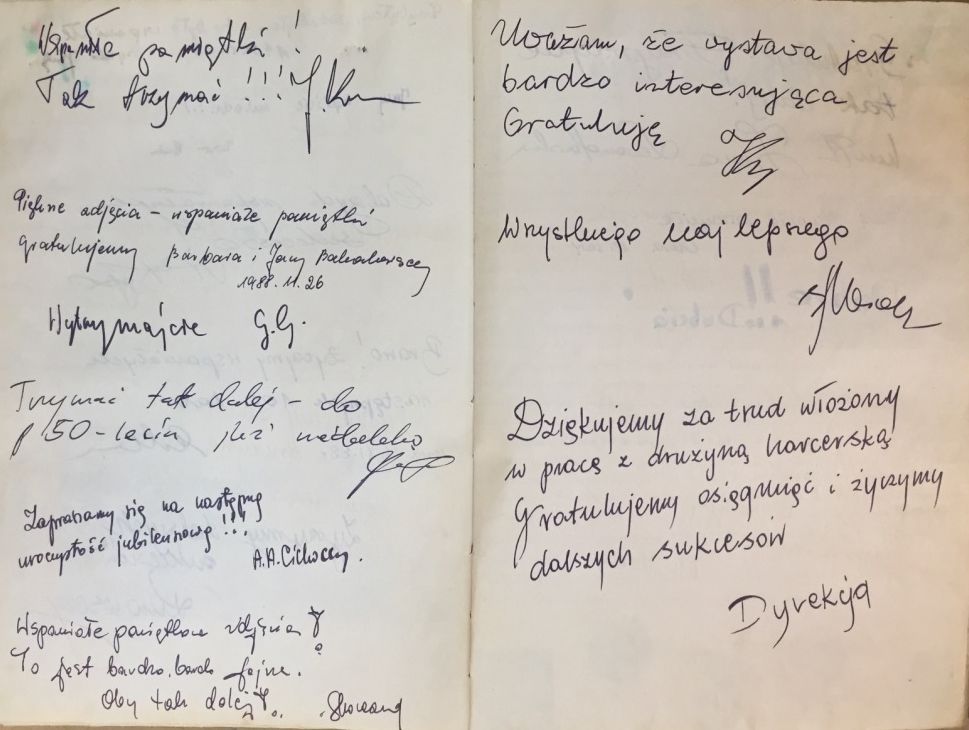 Wspaniałe pamiątki!
Tak trzymać!!!
Piękne zdjęcia – wspaniałe pamiątki
gratulujemy Barbara i Jerzy
1988.11.26
Wytrzymajcie G.G.
Trzymać tak dalej – do
50-lecia już niedaleko
Zapraszamy się na następną
uroczystość jubileuszową!!!
A.A.Cichoccy.
Wspaniałe pamiątkowe zdjęcia!
To jest bardzo, bardo fajne.
Oby tak dalej!
Uważam, że wystawa jest
bardzo interesująca
Gratuluję
Wszystkiego najlepszego
Dziękujemy za trud włożony
w pracę z drużyną harcerską
Gratulujemy osiągnięć i życzymy
dalszych sukcesów
Dyrekcja